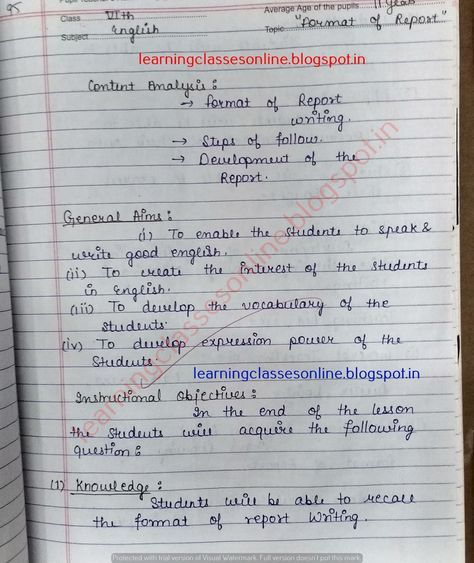 95
Average Age of the pupils 11 years
Class VIth
Topic "Format of Report"
Subject English
learningclassesonline.blogspot.in
Content Analysis :
→ Format of Report
writing.
→ Steps of follow.
→ Development of the
Report.
General Aims :
(i) To enable the students to speak &
write good english.
(ii) To create the interest of the students
in English.
(iii) To develop the vocabulary of the
students.
(iv) To develop expression power of the
Students.
learningclassesonline.blogspot.in
learningclassesonline.blogspot.in
Instructional Objectives :
In the end of the lesson
the students will acquire the following
question :
(1) Knowledge :
Students will be able to recall
the format of report writing.
Protected with trial version of Visual Watermark. Full version doesn't put this mark.